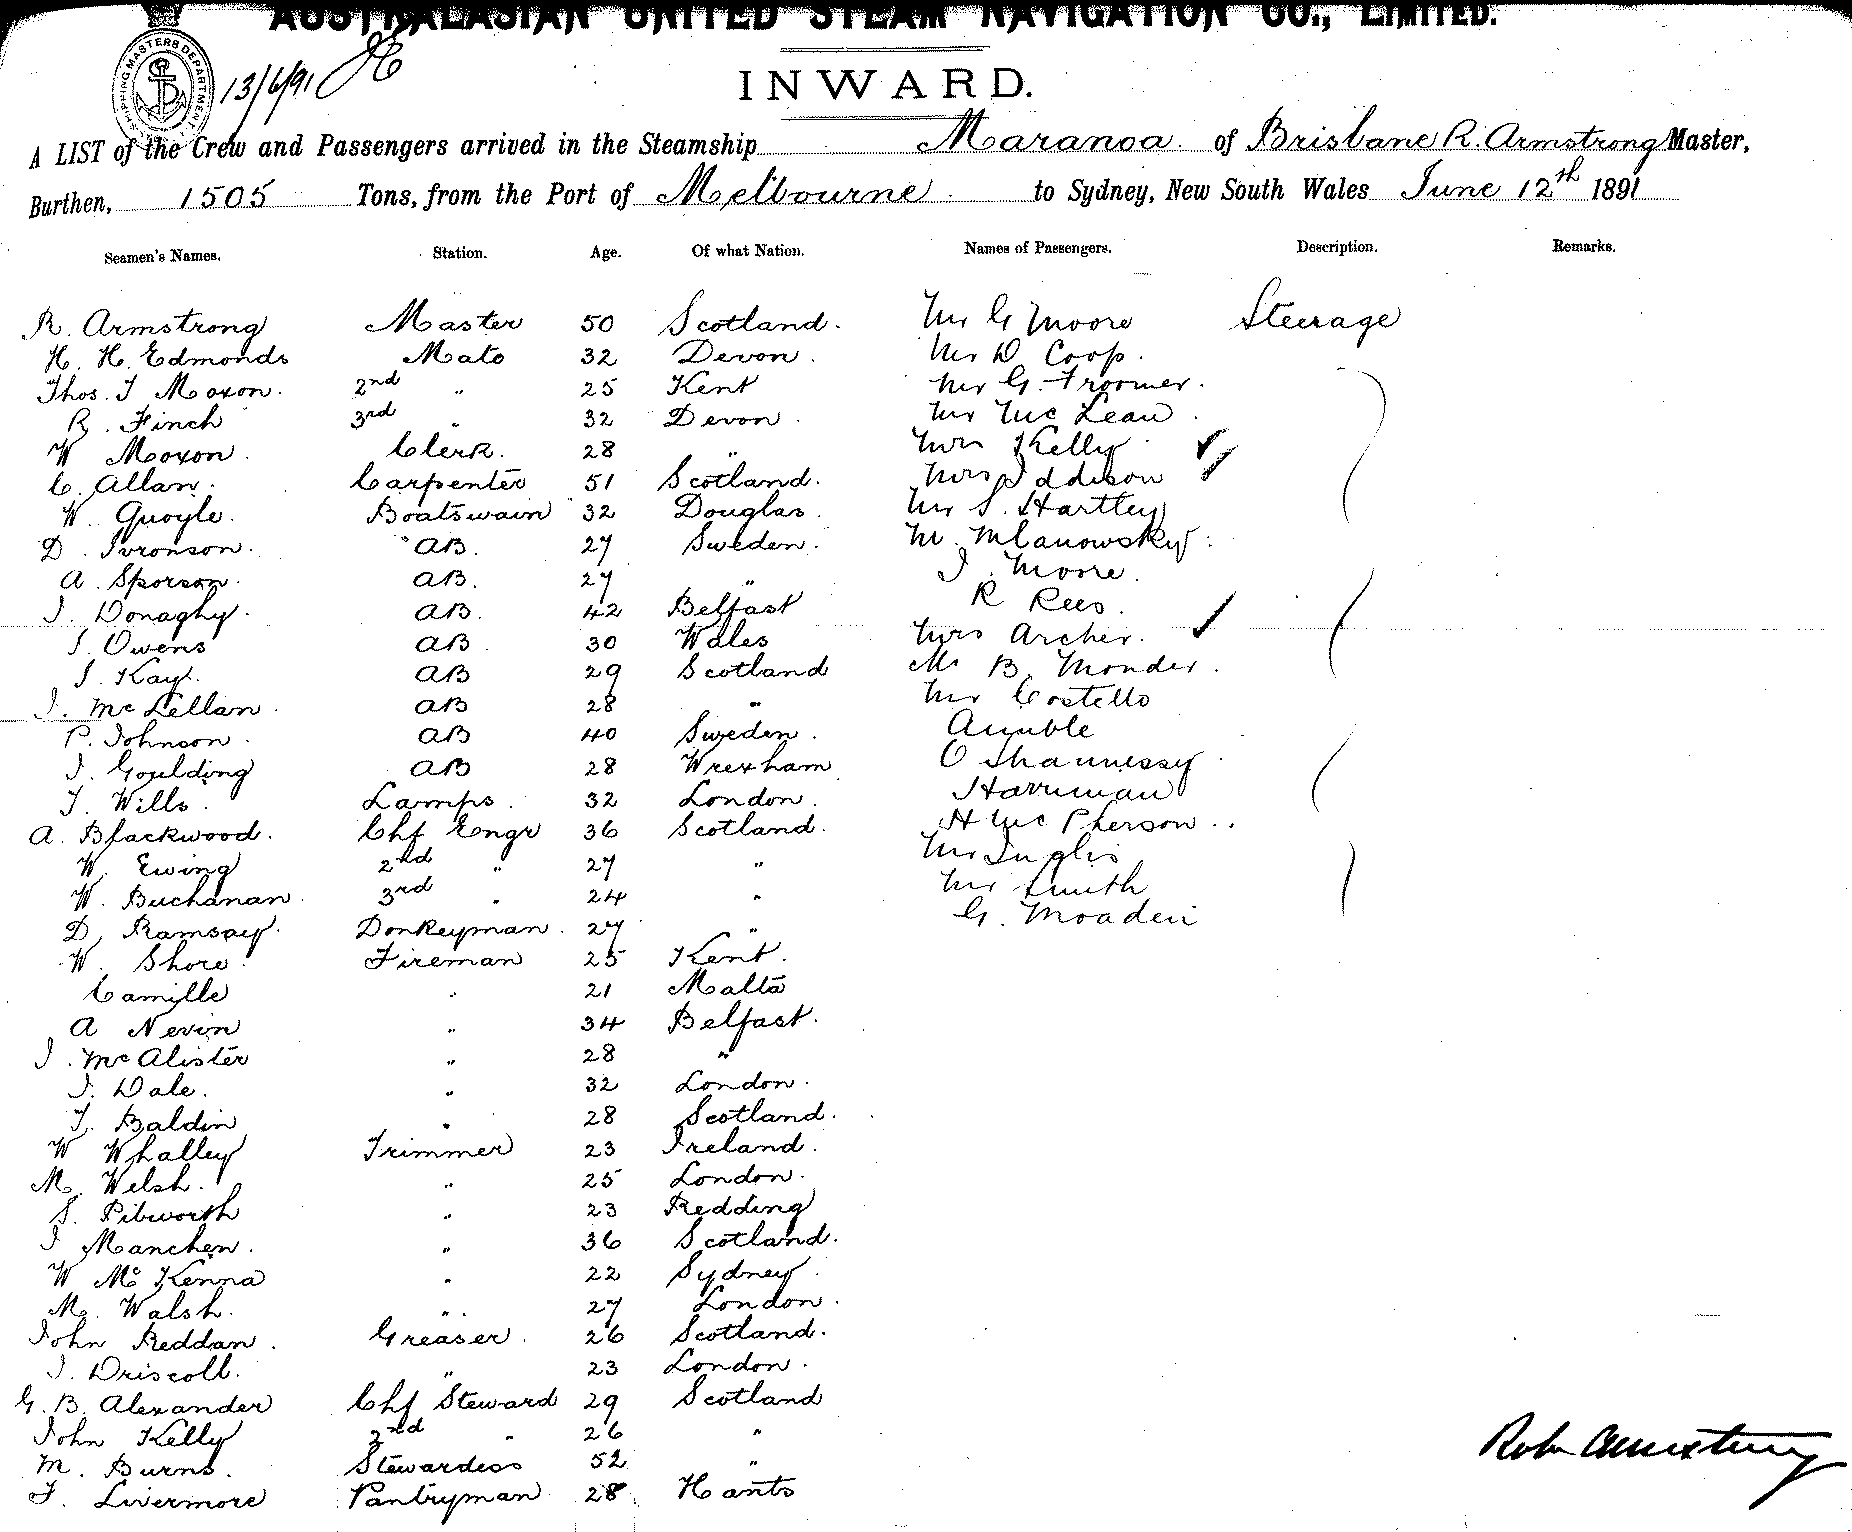 AUSTRALASIAN UNITED STEAM NAVIGATION CO., LIMITED.
SHIPPING MASTERS DEPARTMENT
13/6/91
INWARD.
A LIST of the Crew and Passengers arrived in the Steamship Maranoa of Brisbane R. Armstrong Master,
Burthen, 1505 Tons, from the Port of Melbourne to Sydney, New South Wales June 12th 1891
Seamen's Names. Station. Age. Of what Nation. Names of Passengers. Description. Remarks.
R. Armstrong Master 50 Scotland. Mr G Moore Steerage
H. H. Edmonds Mate 32 Devon. Mr D Coop.
Thos. J Moxon. 2nd " 25 Kent Mr G. Froomer.
R. Finch 3rd " 32 Devon. Mr McLean
W Moxon. Clerk. 28 " Mrs Kelly
C. Allan. Carpenter 51 Scotland. Mrs Iddison
W. Quoyle. Boatswain 32 Douglas. Mr S. Hartley
D. Ivronson. AB. 27 Sweden. M. Mlanowsky.
A. Sporson. AB. 27 " J. Moore.
J. Donaghy. AB. 42 Belfast R Rees.
J. Owens AB 30 Wales Mrs Archer.
J. Kay. AB 29 Scotland Mr B. Monder.
J. McLellan. AB 28 " Mr Costello
P. Johnson. AB 40 Sweden. Aumble
J. Goulding AB 28 Wrexham O Shannessy
T. Wills. Lamps. 32 London. Harriman
A. Blackwood. Chf Engr 36 Scotland. H McPherson..
W. Ewing 2nd " 27 " Mr Inglis
W. Buchanan. 3rd " 24 " Mr Smith
D. Ramsay. Donkeyman. 27 " G. Moaden
W. Shore. Fireman 25 Kent.
Camille " 21 Malta
A Nevin " 34 Belfast.
J. McAlister " 28 "
J. Dale. " 32 London.
T. Baldin " 28 Scotland.
W Whalley Trimmer 23 Ireland.
M. Welsh. " 25 London.
S. Pibworth " 23 Redding
J Manchen. " 36 Scotland.
W McKenna " 22 Sydney.
M. Walsh. " 27 London.
John Reddan. Greaser. 26 Scotland.
J. Driscoll. " 23 London.
G. B. Alexander Chf Steward 29 Scotland
John Kelly 2nd " 26 "
M. Burns. Stewardess 52 "
F. Livermore Pantryman 28 Hants
Robr Armstrong